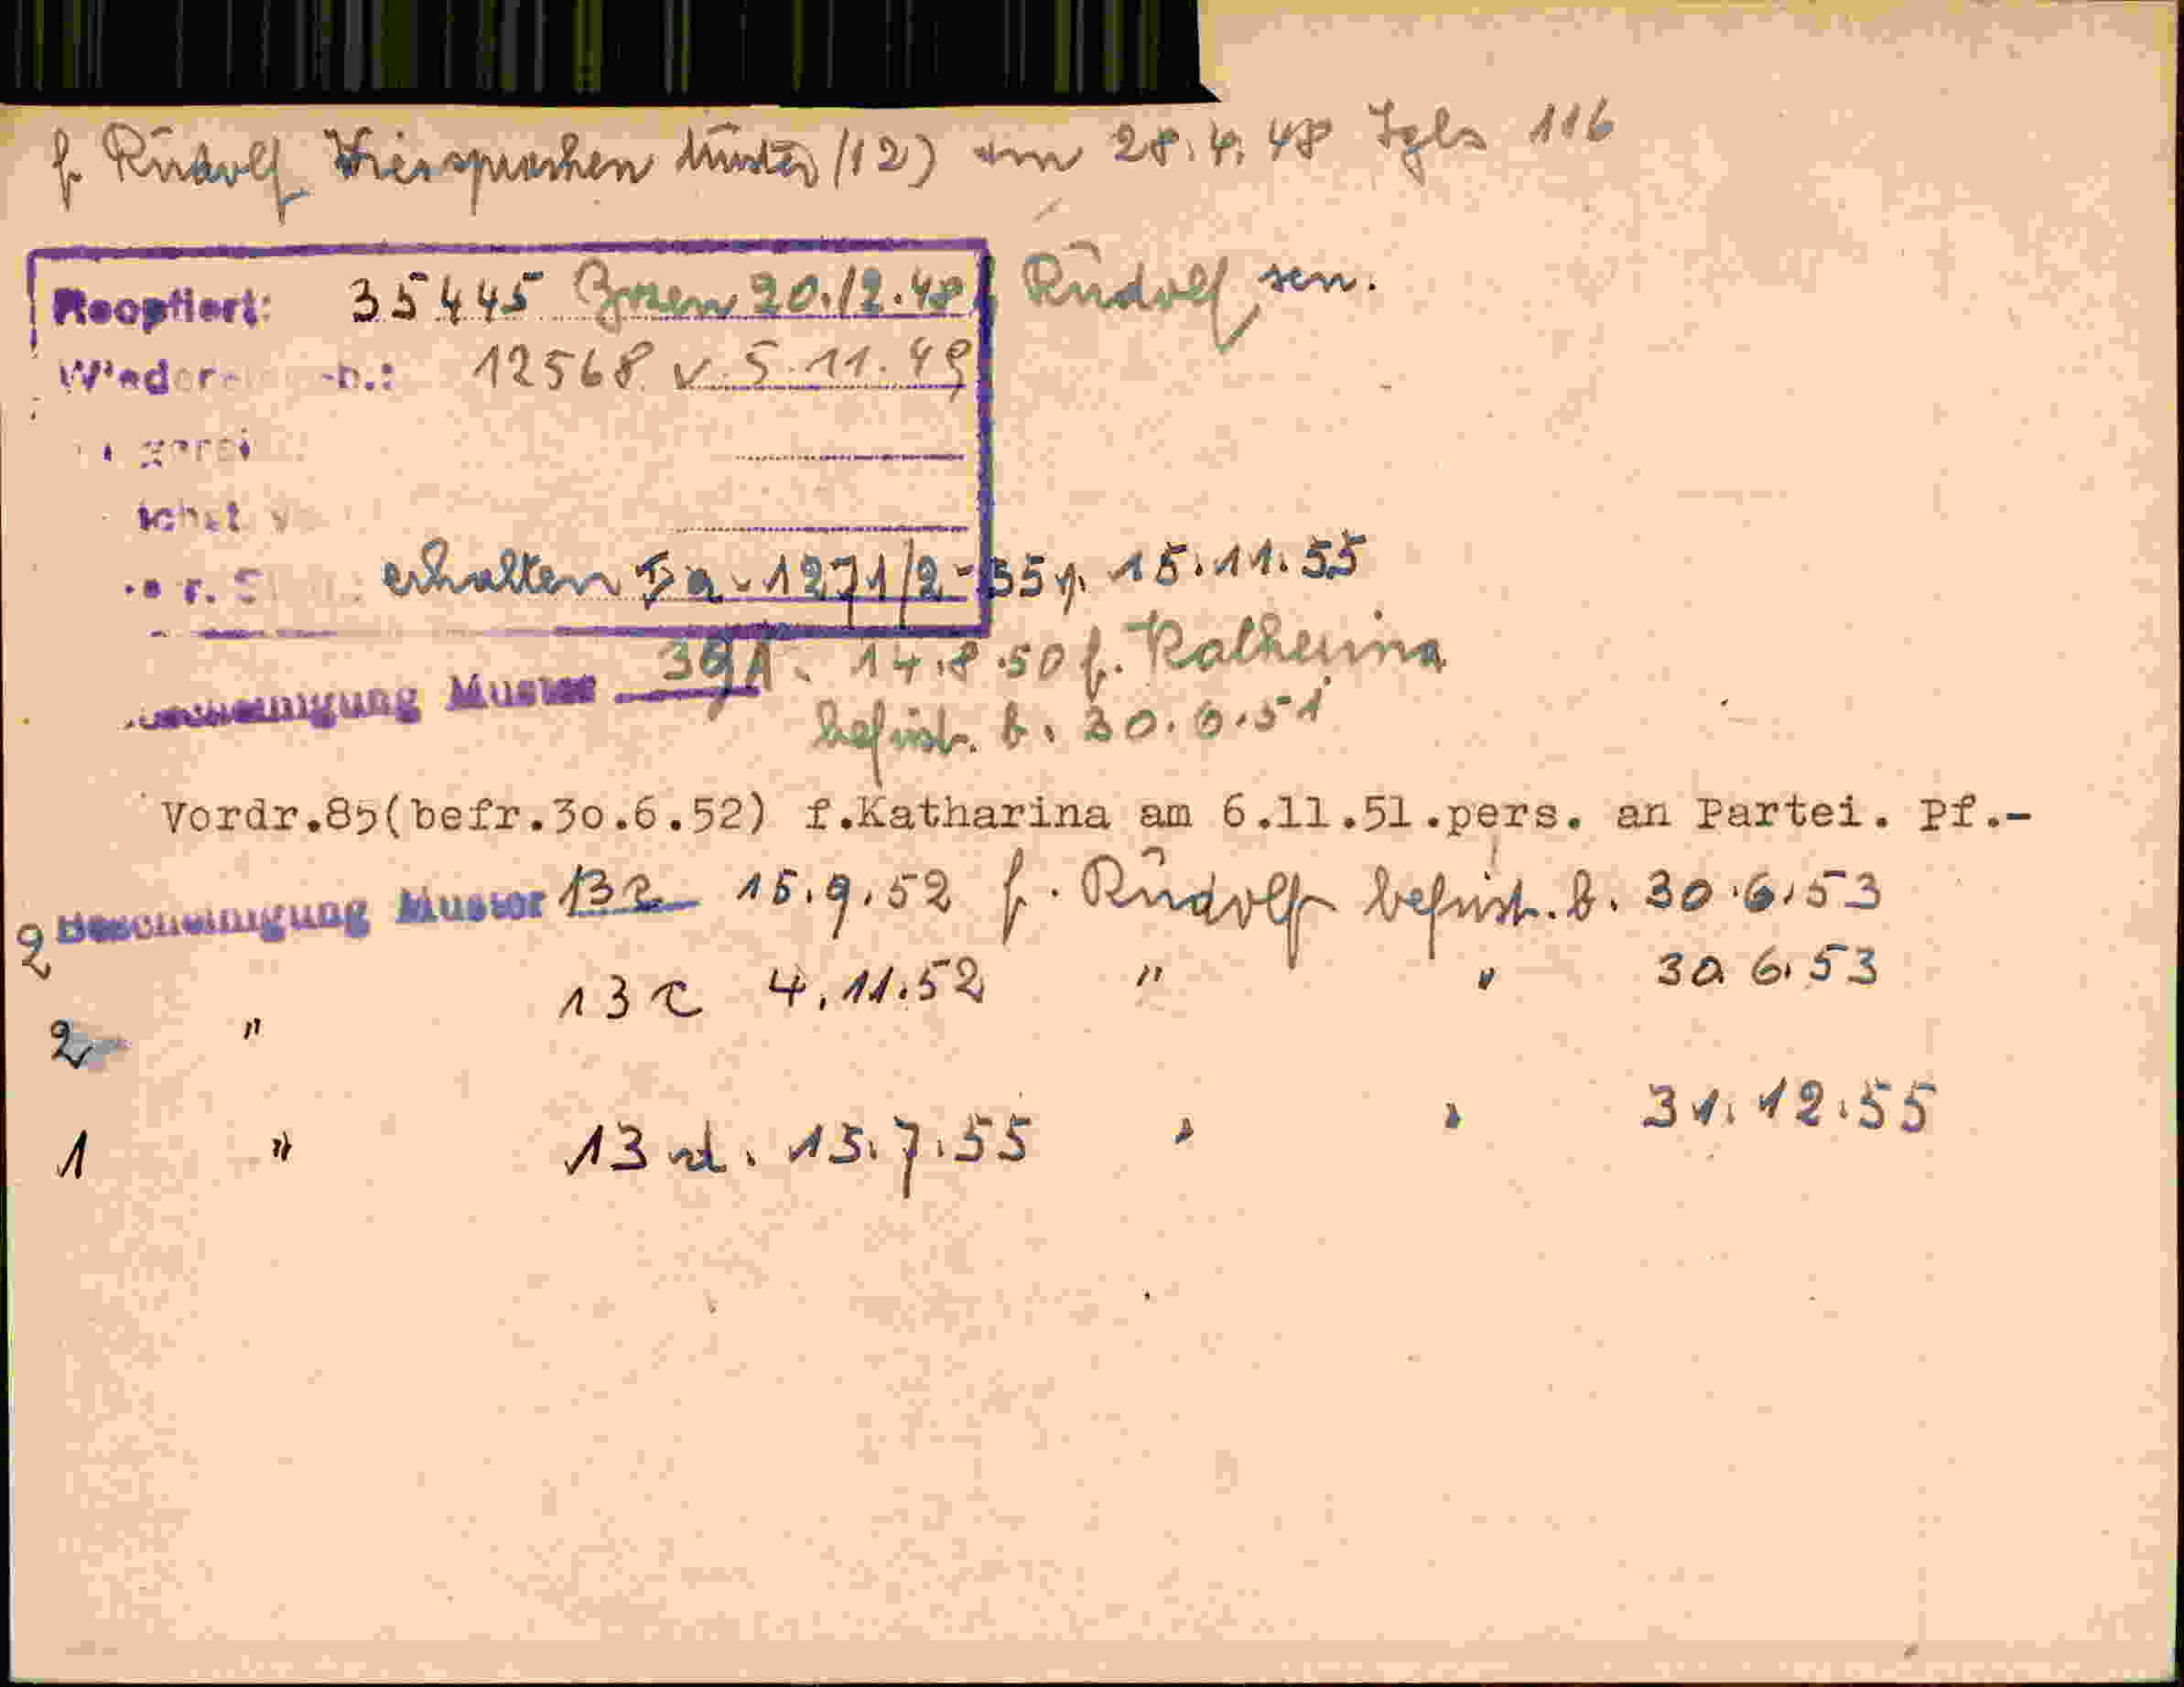 f. Rudolf Viersprachen Muster (12) am 28.4.48 Igls 116
Reoptiert: 35445 Bozen 20.12.48 Rudolf sen.
12568 v. 5.11.49
erhalten Ia-1271/2-55 v. 15.11.55
Muster 39A. 14.8.50 f. Katherina
befrist. b. 30.6.51
Vordr.85(befr.30.6.52) f.Katharina am 6.11.51.pers. an Partei. Pf.-
2 Bescheinigung Muster 13c 15.9.52 f. Rudolf befrist. b. 30.6.53
2 " 13c 4.11.52 " " 30.6.53
1 " 13d. 15.7.55 " " 31.12.55